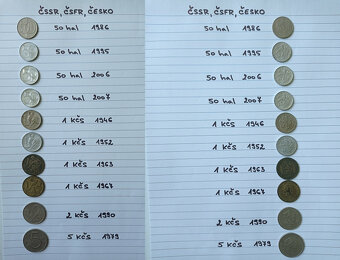 ČSSR, ČSFR, ČESKO
50 hal 1986
50 hal 1995
50 hal 2006
50 hal 2007
1 kčs 1946
1 kčs 1952
1 kčs 1963
1 kčs 1967
2 kčs 1980
5 kčs 1979
ČSSR, ČSFR, ČESKO
50 hal 1986
50 hal 1995
50 hal 2006
50 hal 2007
1 kčs 1946
1 kčs 1952
1 kčs 1963
1 kčs 1967
2 kčs 1980
5 kčs 1979